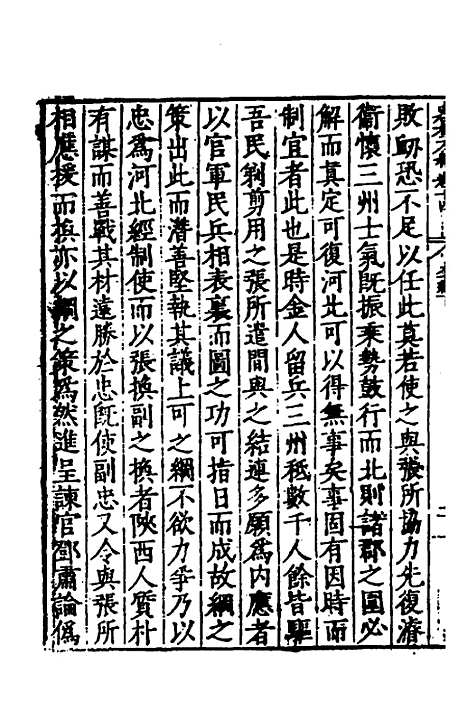 敗衂恐不足以任此莫若使之與張所協力先復濬
衞懷三州士氣旣振乘勢鼓行而北則諸郡之圍必
解而真定可復河北可以得無事矣事固有因時而
制宜者此也是時金人留兵三州秪數千人餘皆驅
吾民剃剪用之張所遣間與之結連多願爲内應者
以官軍民兵相表裏而圖之功可指日而成故綱之
策出此而潜善堅執其議上可之綱不欲力爭乃以
忠爲河北經制使而以張換副之換者陝西人質朴
有謀而善戰其材遠勝於忠旣使副忠又令與張所
相應援而換亦以綱之策爲然進呈諫官鄧肅論僞